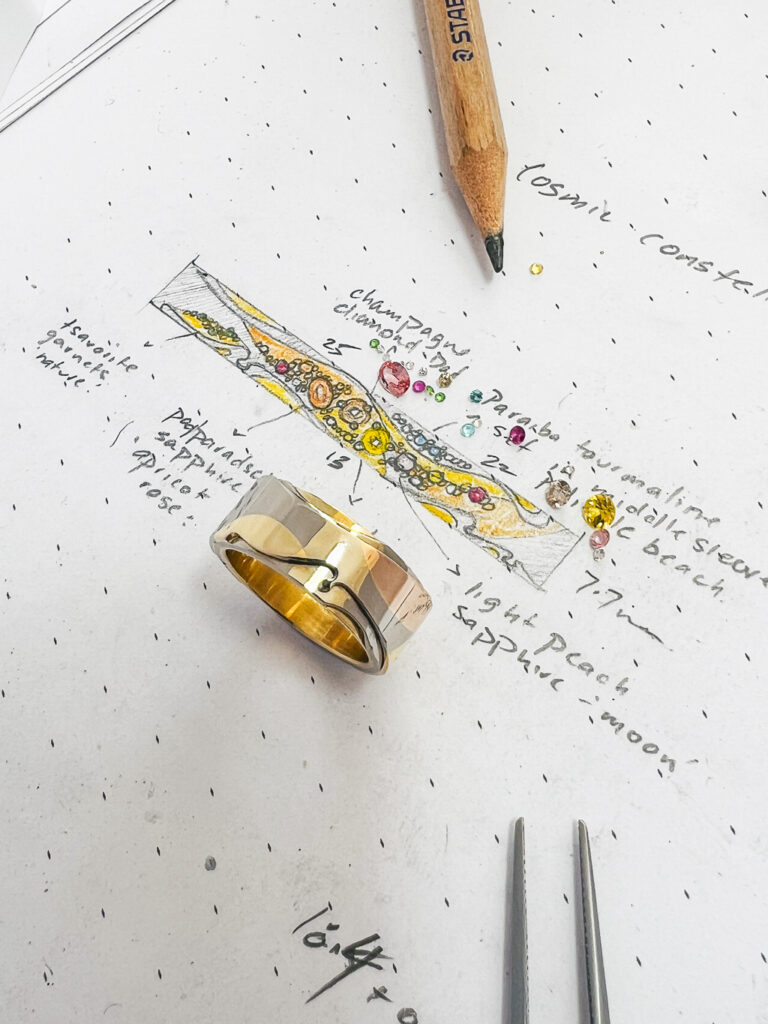 STAB
cosmic constel
champagne
diamond-Dad
25
tsavorite
garnets
nature.
padparadscha
sapphire
apricot
rose.
13
Paraiba tourmaline
set in middle sleeve
22
beach
7.7mm
light peach
sapphire - 'moon'